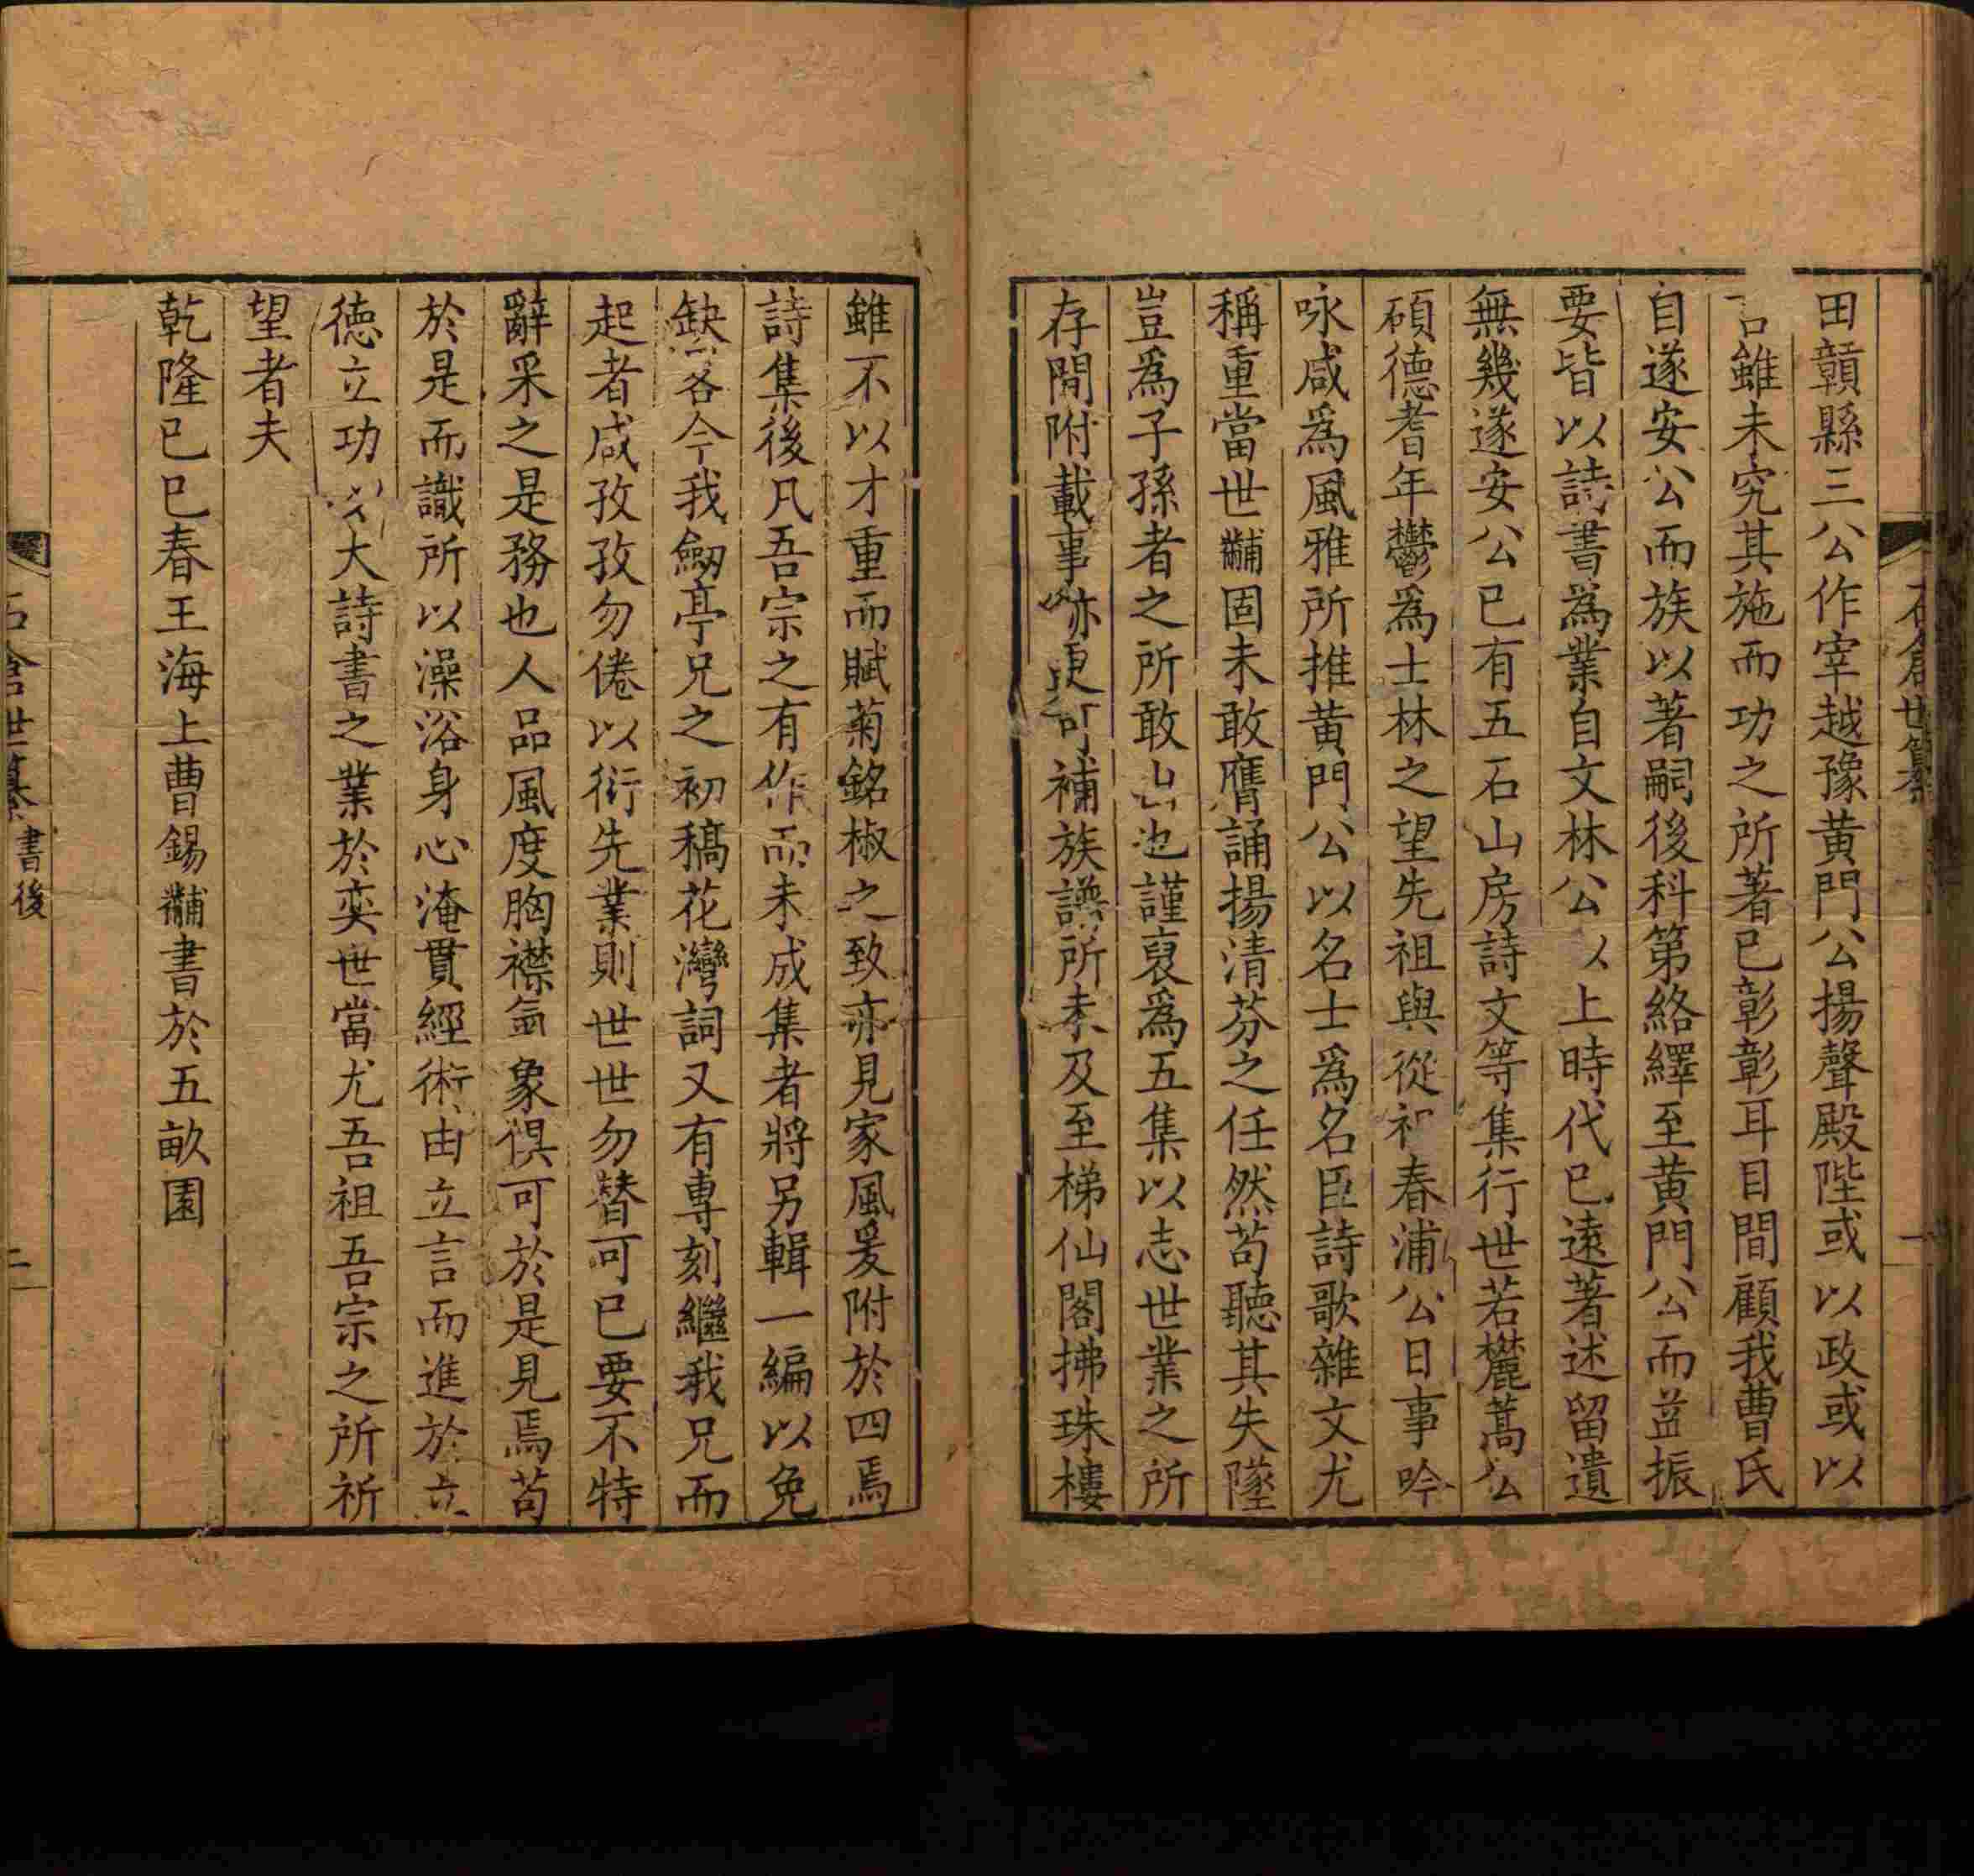 石倉世纂
一
田贑縣三公作宰越豫黄門公揚聲殿陛或以政或以
言雖未究其施而功之所著已彰彰耳目間顧我曹氏
自遂安公而族以著嗣後科第絡繹至黄門公而益振
要皆以詩書爲業自文林公以上時代已遠著述留遺
無幾遂安公已有五石山房詩文等集行世若麓蒿公
碩德耆年鬱爲士林之望先祖與從祖春浦公日事吟
咏咸爲風雅所推黄門公以名士爲名臣詩歌雜文尤
稱重當世黼固未敢膺誦揚清芬之任然苟聽其失墜
豈爲子孫者之所敢出也謹裒爲五集以志世業之所
存閒附載事亦更可補族譜所未及至梯仙閣拂珠樓
雖不以才重而賦菊銘椒之致亦見家風爰附於四焉
詩集後凡吾宗之有作而未成集者將另輯一編以免
缺畧今我劒亭兄之初稿花灣詞又有專刻繼我兄而
起者咸孜孜勿倦以衍先業則世世勿替可已要不特
辭采之是務也人品風度胸襟氣象俱可於是見焉苟
於是而識所以澡浴身心淹貫經術由立言而進於立
德立功以大詩書之業於奕世當尤吾祖吾宗之所祈
望者夫
乾隆己巳春王海上曹錫黼書於五畝園
石倉世纂
書後
二